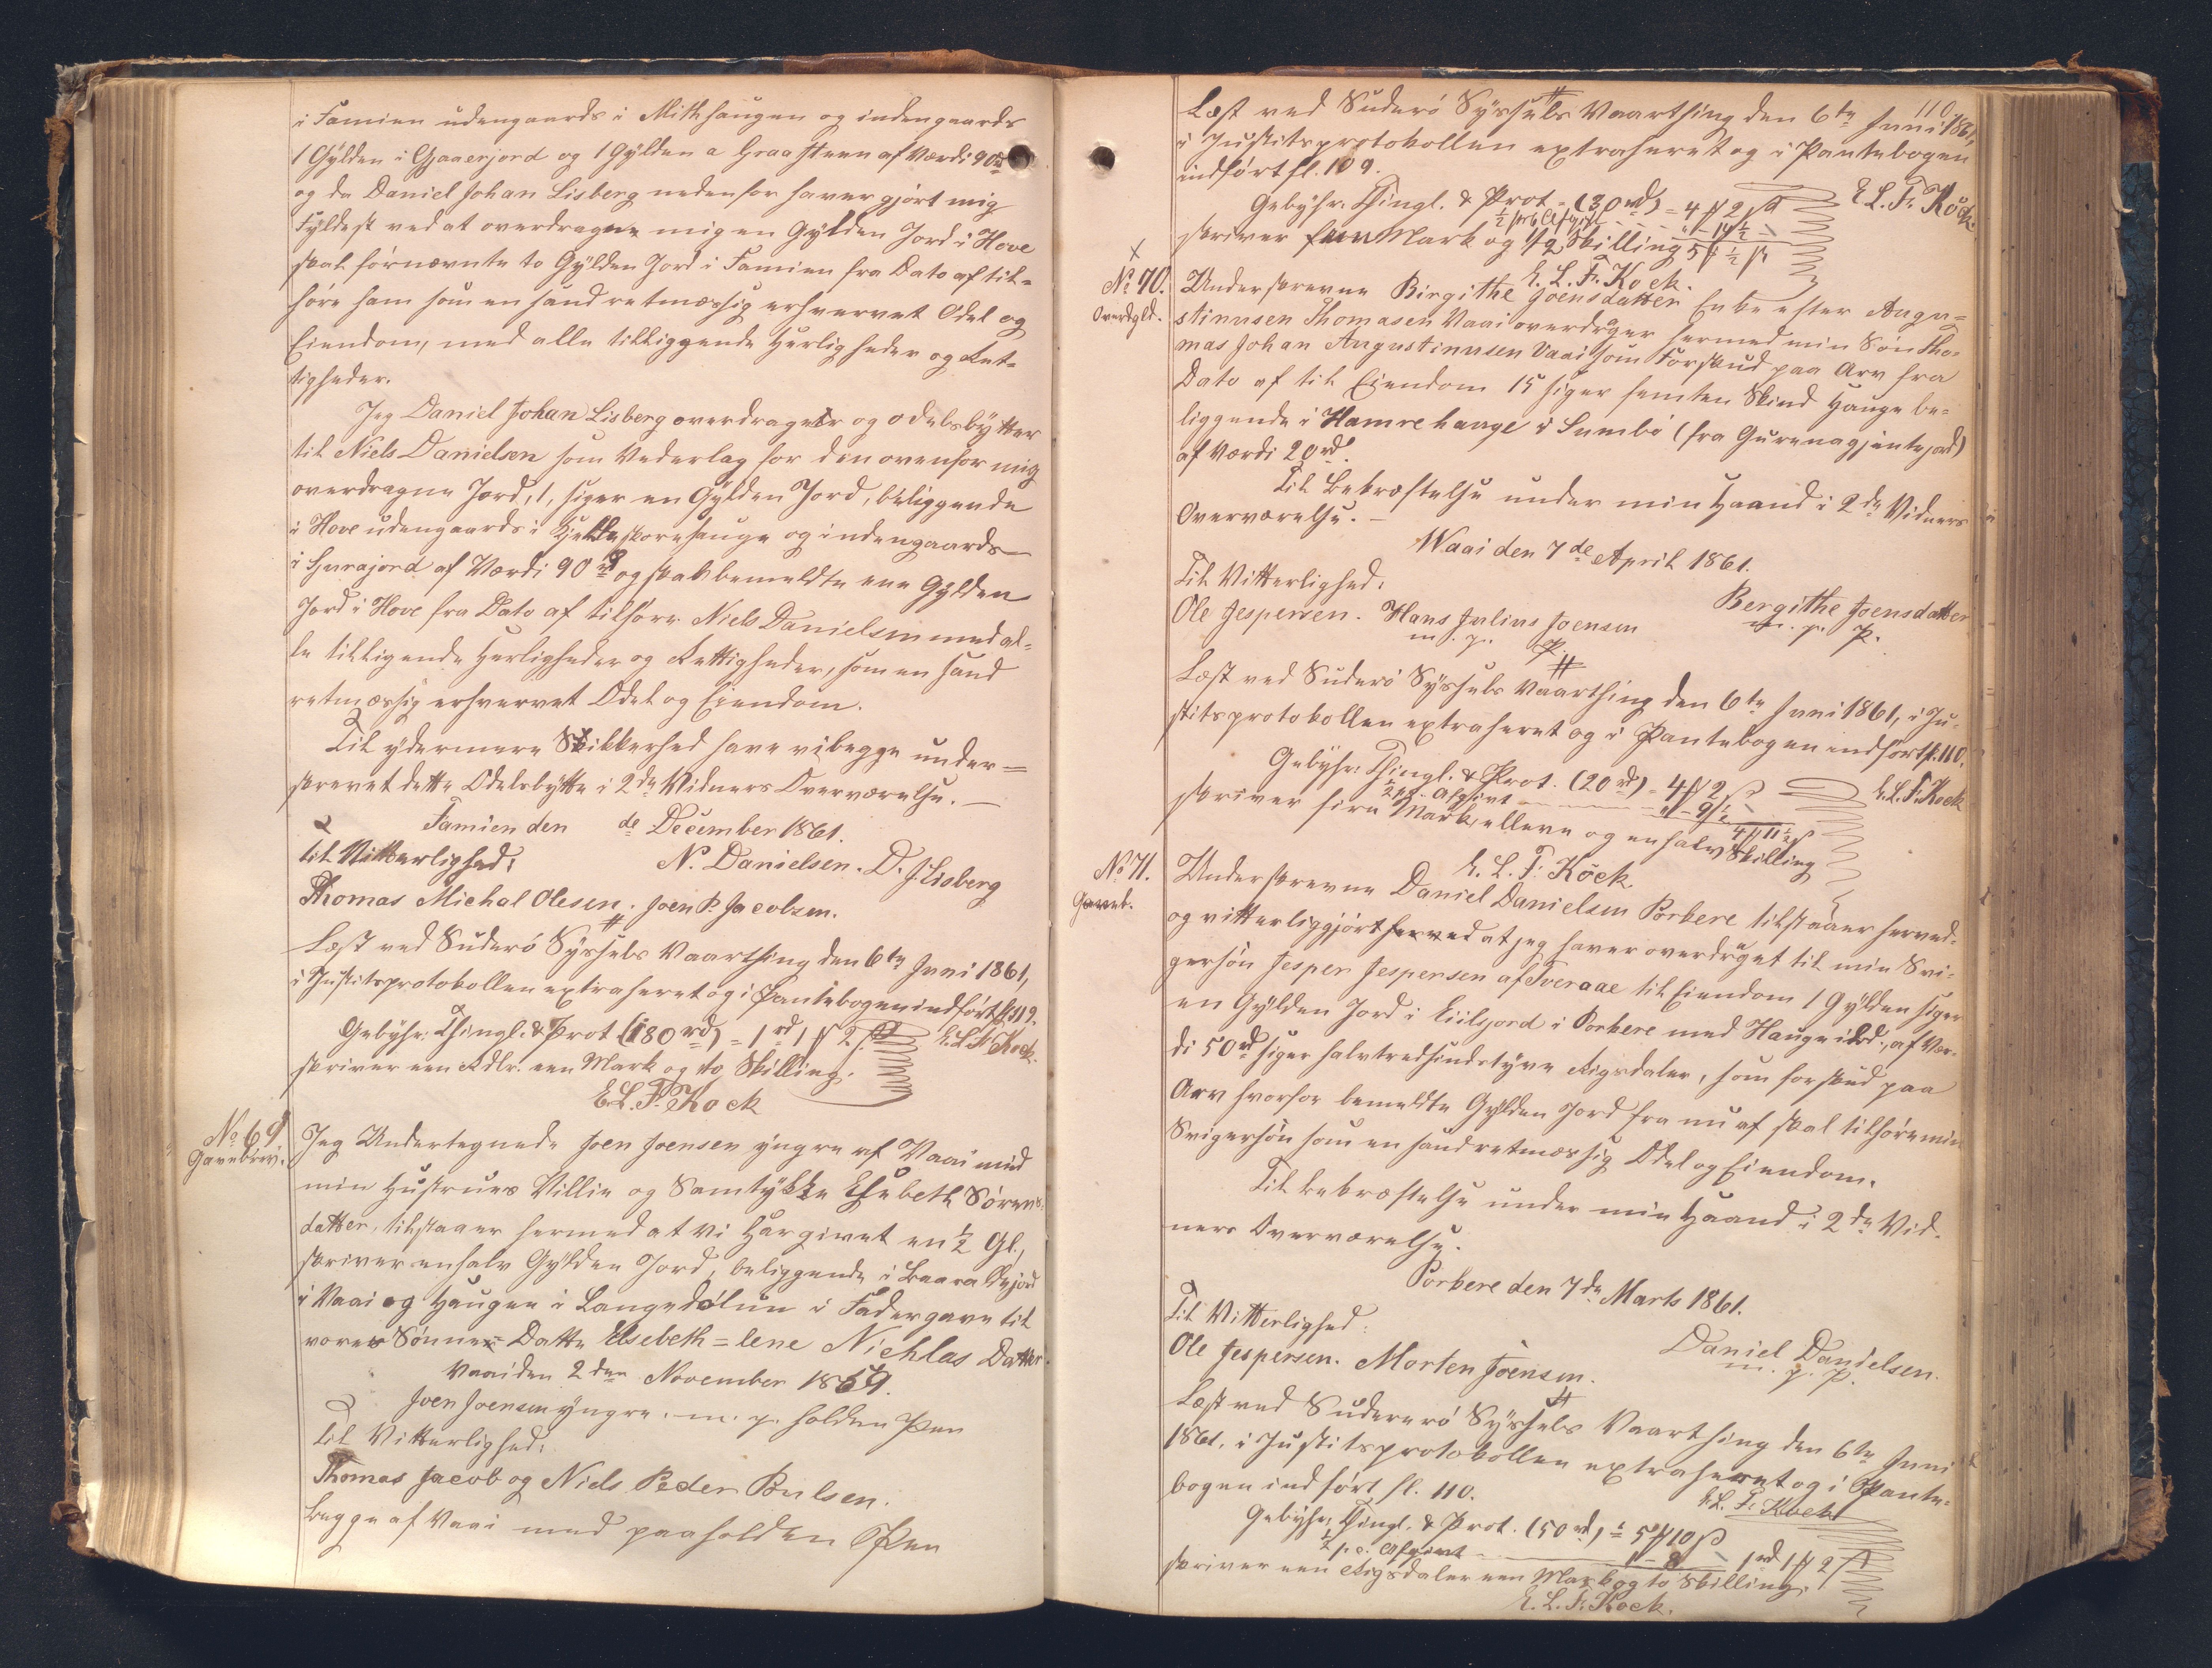 i Famien udengaards i Mithhaugen og indengaards
1 Gylden i Gjaaerjord og 1 Gylden a Graasteen af Værdi 90 rd
og da Daniel Johan Lisberg nedenfor haver gjört mig
Fyldest ved at overdragne mig en Gylden Jord i Hove
skal förnævnte to Gylden Jord i Famien fra Dato af til=
höre ham som en sand retmæssig erhvervet Odel og
Eiendom, med alle tilliggende Herligheder og Ret-
tigheder.
Jeg Daniel Johan Lisberg overdrager og odelsbytter
til Niels Danielsen som Vederlag for den ovenfor mig
overdragne Jord, 1, siger en Gylden Jord, beliggende
i Hove udengaards i Kjelleskorehauge og indengaards
i Hjurajord af Værdi 90 rd og skal bemeldte ene Gylden
Jord i Hove fra Dato af tilhöre Niels Danielsen med al-
le tilligende Herligheder og Rettigheder, som en sand
retmæssig erhvervet Odel og Eiendom.
Til ydermere Sikkerhed have vi begge under=
skrevet dette Odelsbytte i 2de Vidners Overværelse. —
Famien den de December 1861.
Til Vitterlighed: N. Danielsen. D. J. Lisberg
Thomas Michal Olesen. Joen P. Jacobsen.
Læst ved Suderö Syssels Vaarthing den 6te Juni 1861,
i Justitsprotokollen extraheret og i Pantebogen indfört fl 112.
Gebyhr: Thingl. & Prot (180 rd) = 1 rd 1 # 2 ß E. L. F. Kock.
skriver een Rdlr. een Mark og to Skilling.
E. L. F. Kock
No 69.
Gavebrev.
Jeg Undertegnede Joen Joensen yngre af Vaai med
min Hustrues Villie og Samtykke Elsebeth Sörens-
datter, tilstaaer hermed at vi Har givet en ½ Gl.,
skriver en halv Gylden Jord, beliggende i
i Vaai og Haugen i Langedölun i Fadergave til
vores Sönne Datte Elsebeth = lene Nichlas Datter.
Vaai den 2den November 1859.
Joen Joensen yngre. m. p. holden Pen
Til Vitterlighed:
Thomas Jacob og Niels Peder Poulsen.
Begge af Vaai med paaholden Pen
110
Læst ved Suderö Syssels Vaarthing den 6te Juni 1861,
i Justitsprotokollen extraheret og i Pantebogen
indfört fl. 109.
Gebyhr: Thingl. & Prot = (30 rd) = 4 # 2 ß E. L. F. Kock.
½ prC Afgift " - 14½ -
skriver fem Mark og ½ Skilling 5 # ½ ß
E. L. F. Kock.
No 70.
Overdgld.
Underskrevne Birgithe Joensdatter Enke efter Augu=
stinusen Thomasen Vaai overdrager hermed min Sön Tho-
mas Johan Augustinusen Vaai som Forskud paa Arv fra
Dato af til Eiendom 15 siger femten Skind Hauge be-
liggende i Hamrehauge i Sumbö (fra Gurenagjentejord)
af Værdi 20 rd.
Til Bekræftelse under min Haand i 2de Vidners
Overværelse. —
Waai den 7de April 1861.
Til Vitterlighed:
Ole Jespersen. Hans Julius Joensen Bergithe Joensdatter
m. p. P. m. p. P.
Læst ved Suderö Syssels Vaarthing den 6te Juni 1861, i Ju-
stitsprotokollen extraheret og i Pantebogen indfört fl. 110.
Gebyhr: Thingl. & Prot. (20 rd) = 4 # 2 ß E. L. F. Kock
½ pC. Afgivt " - 9½ -
4 # 11½ ß
skriver fire Mark, elleve og en halv Skilling
E. L. F. Kock.
No 71.
Gaveb.
Underskrevne Daniel Danielsen Porkere tilstaaer herved-
og vitterliggjört herved at jeg haver overdraget til min Svi-
gersön Jesper Jespersen af Tveraae til Eiendom 1 Gylden siger
en Gylden Jord i Eiilsjord i Porkere med Hauge ibd., af Vær-
di 50 rd siger halvtredsindstyve Rigsdaler, som forskud paa
Arv hvorfor bemeldte Gylden Jord fra nu af skal tilhöre min
Svigersön som en sand retmæssig Odel og Eiendom.
Til bekræftelse under min Haand i 2de Vid-
ners Overværelse.
Porkere den 7de Marts 1861.
Til Vitterlighed:
Ole Jespersen. Morten Joensen. Daniel Danielsen.
m. p. P.
Læst ved Suderö Syssels Vaarthing den 6te Juni
1861, i Justitsprotokollen extraheret og i Pante-
bogen indfört fl. 110. E. L. F. Kock
Gebyhr: Thingl. & Prot. (50 rd) = 5 # 10 ß
½ p. c. Afgivt 1 - 8 - 1 rd 1 # 2 ß
skriver een Rigsdaler een Mark og to Skilling.
E. L. F. Kock.